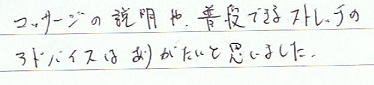 マッサージの説明や、普段できるストレッチの
アドバイスはありがたいと思いました。